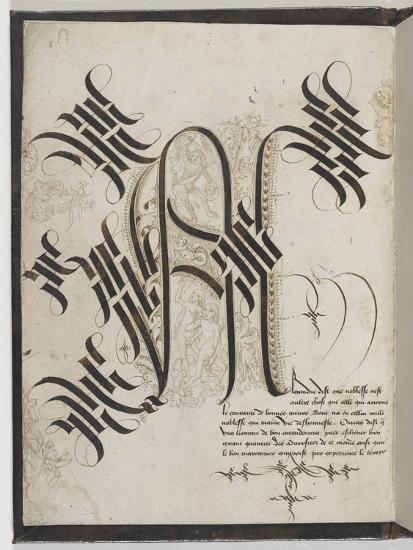 Alexandre dist que noblesse nest
aultre chose que celle qui aourne
le couraige de bonnes meurs Dont na en cellui nulle
noblesse qui maine vie deshonneste. dist q
ung homme de bon entendement peut eschever bien
grant quantite des adversitez de ce monde ainsi que
le bon maronnier congnoist par experience le temps